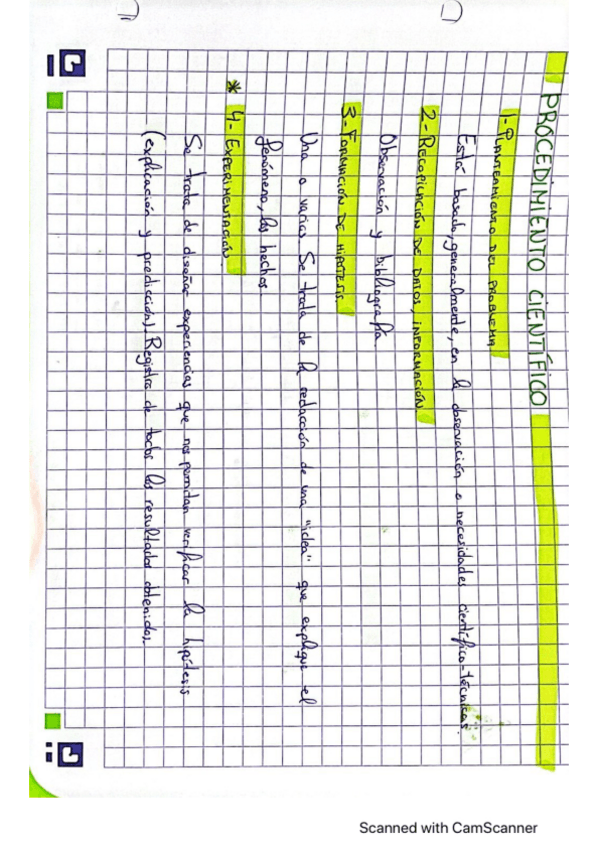 PROCEDIMIENTO CIENTÍFICO
1- PLANTEAMIENTO DEL PROBLEMA
Está basado, generalmente, en la observación o necesidades científico-técnicas.
2- RECOPILACIÓN DE DATOS, INFORMACIÓN.
Observación y bibliografía.
3- FORMULACIÓN DE HIPÓTESIS.
Una o varias. Se trata de la redacción de una "idea" que explique el
fenómeno, los hechos
* 4- EXPERIMENTACIÓN.
Se trata de diseñar experiencias que nos permitan verificar la hipótesis
(explicación y predicción). Registro de todos los resultados obtenidos.
Scanned with CamScanner